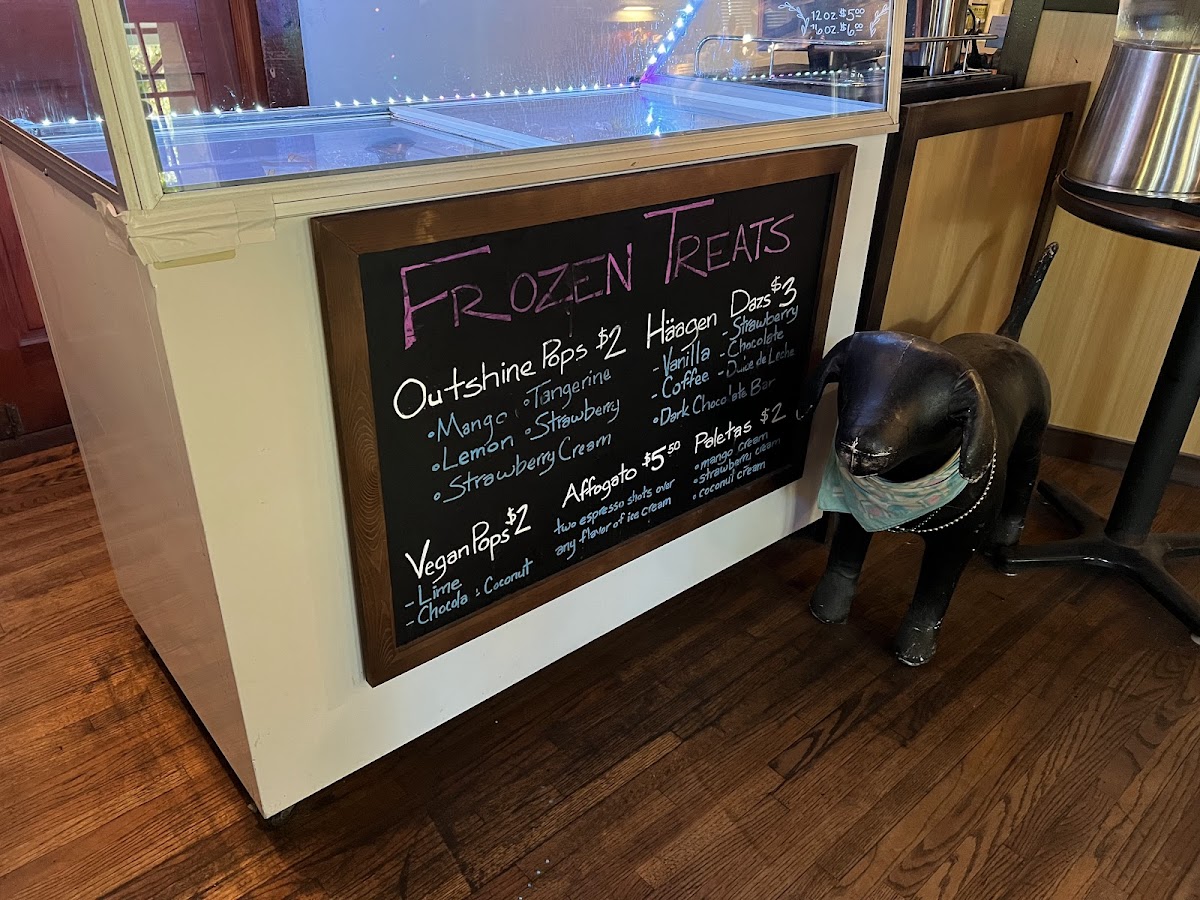 12 oz. $5.00
16 oz. $6.00
FROZEN TREATS
Outshine Pops $2
• Mango • Tangerine
• Lemon • Strawberry
• Strawberry Cream
Vegan Pops $2
- Lime
- Chocola : Coconut
Affogato $5.50
two espresso shots over
any flavor of ice cream
Häagen Dazs $3
- Vanilla - Strawberry
- Coffee - Chocolate
- Dulce de Leche
• Dark Chocolate Bar
Paletas $2
• mango cream
• strawberry cream
• coconut cream